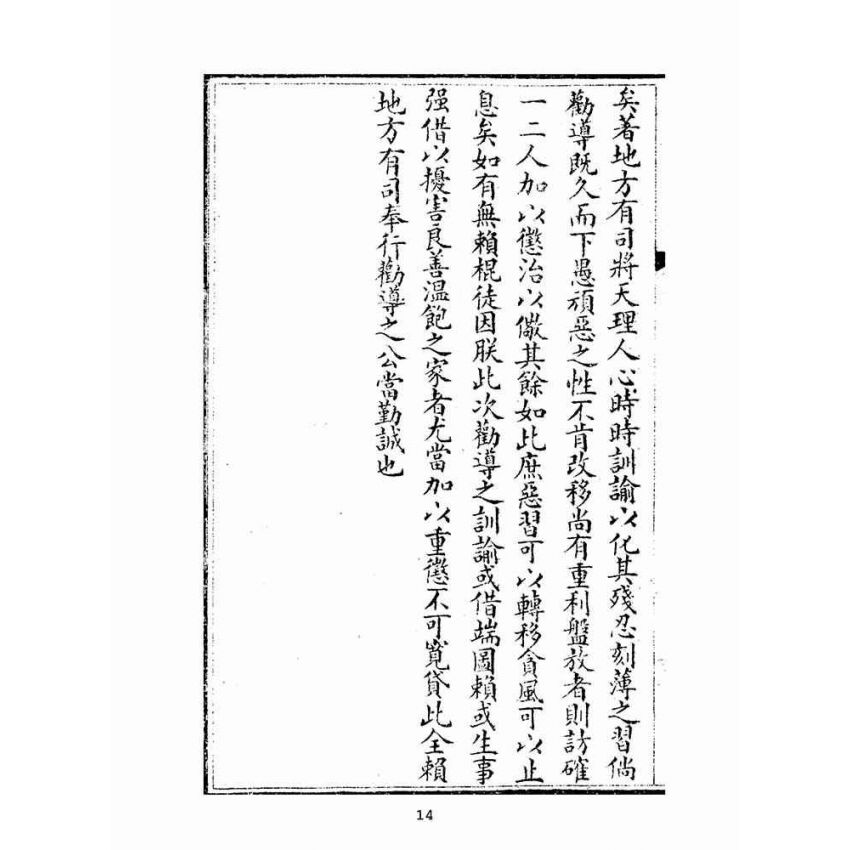 矣著地方有司將天理人心時時訓諭以化其殘忍刻薄之習倘
勸導既久而下愚頑惡之性不肯改移尚有重利盤放者則訪確
一二人加以懲治以儆其餘如此庶惡習可以轉移貪風可以止
息矣如有無賴棍徒因朕此次勸導之訓諭或借端圖賴或生事
强借以擾害良善溫飽之家者尤當加以重懲不可寬貸此全賴
地方有司奉行勸導之公當勤誠也
14